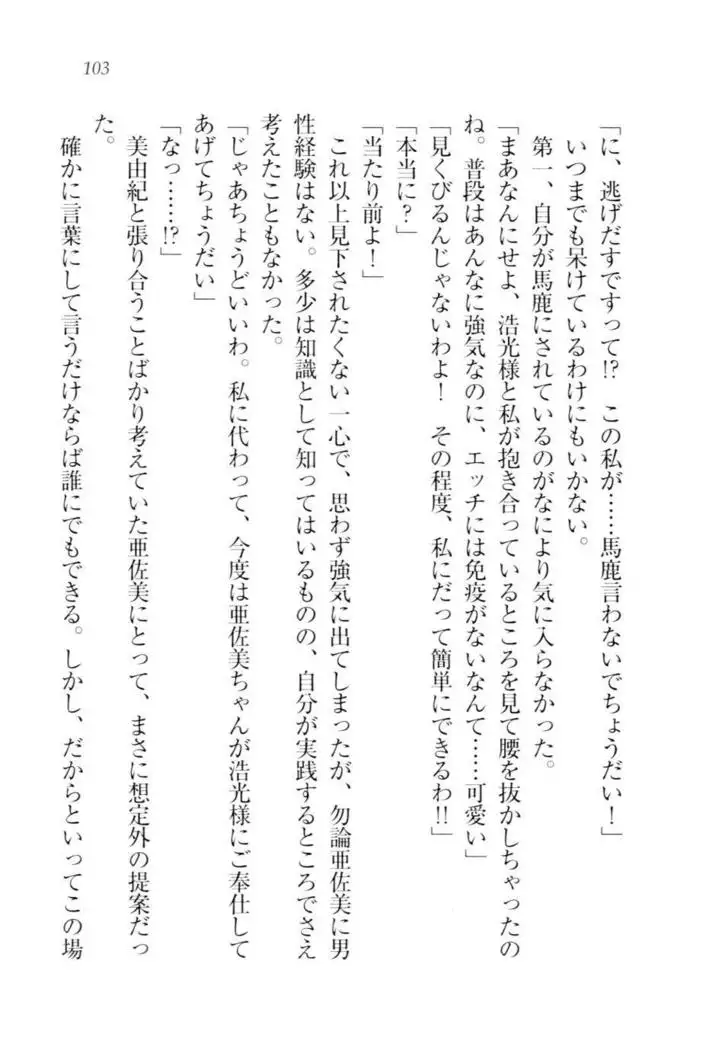 103
「に、逃げだすですって!?　この私が……馬鹿言わないでちょうだい！」
いつまでも呆けているわけにもいかない。
第一、自分が馬鹿にされているのがなにより気に入らなかった。
「まあなんにせよ、浩光様と私が抱き合っているところを見て腰を抜かしちゃったの
ね。普段はあんなに強気なのに、エッチには免疫がないなんて……可愛い」
「見くびるんじゃないわよ！　その程度、私にだって簡単にできるわ!!」
「本当に？」
「当たり前よ！」
これ以上見下されたくない一心で、思わず強気に出てしまったが、勿論亜佐美に男
性経験はない。多少は知識として知ってはいるものの、自分が実践するところでさえ
考えたこともなかった。
「じゃあちょうどいいわ。私に代わって、今度は亜佐美ちゃんが浩光様にご奉仕して
あげてちょうだい」
「なっ……!?」
美由紀と張り合うことばかり考えていた亜佐美にとって、まさに想定外の提案だっ
た。
確かに言葉にして言うだけならば誰にでもできる。しかし、だからといってこの場